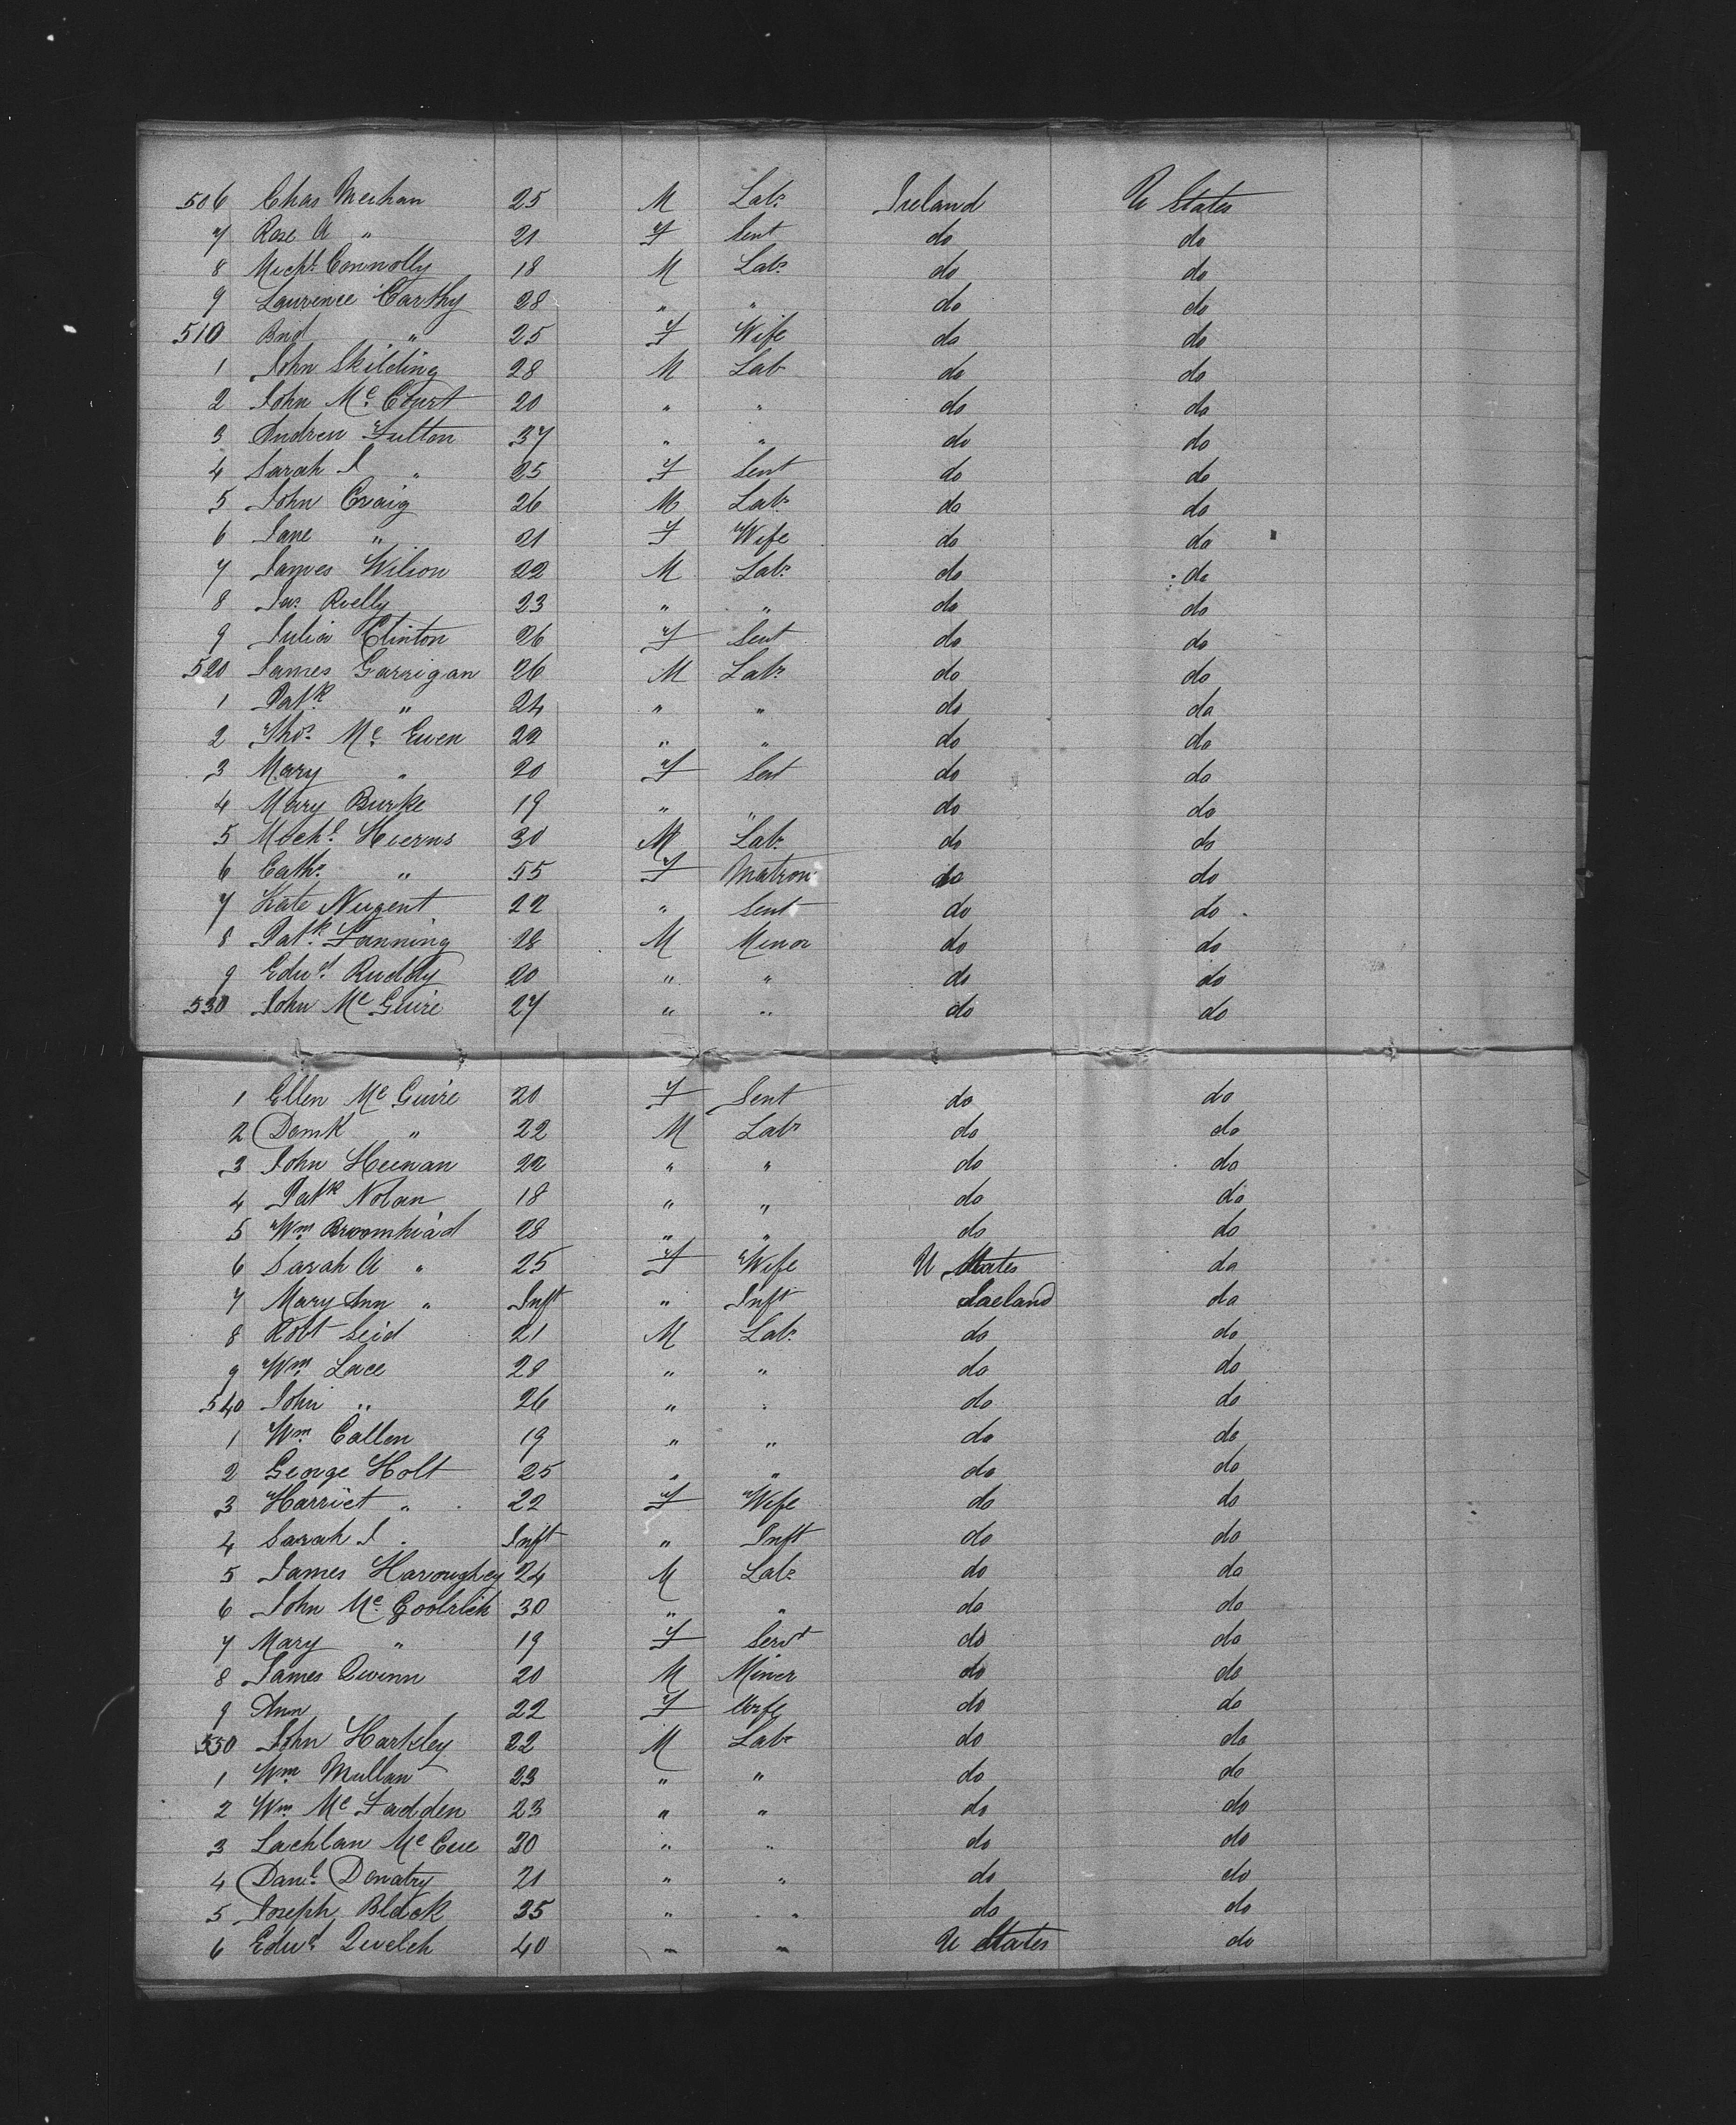 506 Chas Meehan 25 M Labr Ireland U States
7 Rose A " 21 F Sert do do
8 Michl Connolly 18 M Labr do do
9 Laurence Carthy 28 " " do do
510 Brid " 25 F Wife do do
1 John Skilding 28 M Lab do do
2 John Mc Court 20 " " do do
3 Andrew Fulton 37 " " do do
4 Sarah J " 25 F Sert do do
5 John Craig 26 M Labr do do
6 Jane " 21 F Wife do do
7 James Wilson 22 M Labr do do
8 Jas Rielly 23 " " do do
9 Julia Clinton 26 F Sert do do
520 James Garrigan 26 M Labr do do
1 Patk " 24 " " do do
2 Thos Mc Ewen 22 " " do do
3 Mary " 20 F Sert do do
4 Mary Burke 19 " " do do
5 Michl Hierns 30 M Labr do do
6 Cathr " 55 F Matron do do
7 Kate Nugent 22 " Sert do do
8 Patk Fanning 18 M Minor do do
9 Edwd Ruddy 20 " " do do
530 John Mc Guire 27 " " do do
1 Ellen Mc Guire 20 F Sert do do
2 Domk " 22 M Labr do do
3 John Heenan 22 " " do do
4 Patk Nolan 18 " " do do
5 Wm Broomhead 28 " " do do
6 Sarah A " 25 F Wife U States do
7 Mary Ann " Inft " Inft Ireland do
8 Robt Seid 21 M Labr do do
9 Wm Lace 28 " " do do
540 John " 26 " " do do
1 Wm Callen 19 " " do do
2 George Holt 25 " " do do
3 Harriet " 22 F Wife do do
4 Sarah J " Inft " Inft do do
5 James Haroughey 24 M Labr do do
6 John Mc 30 " " do do
7 Mary " 19 F Servt do do
8 James Quinn 20 M Miner do do
9 Ann 22 F Wife do do
550 John Hartley 22 M Labr do do
1 Wm Mullan 23 " " do do
2 Wm Mc Fadden 23 " " do do
3 Lachlan Mc Cue 20 " " do do
4 Danl Donatry 21 " " do do
5 Joseph Black 35 " " do do
6 Edwd Quelch 40 " " U States do